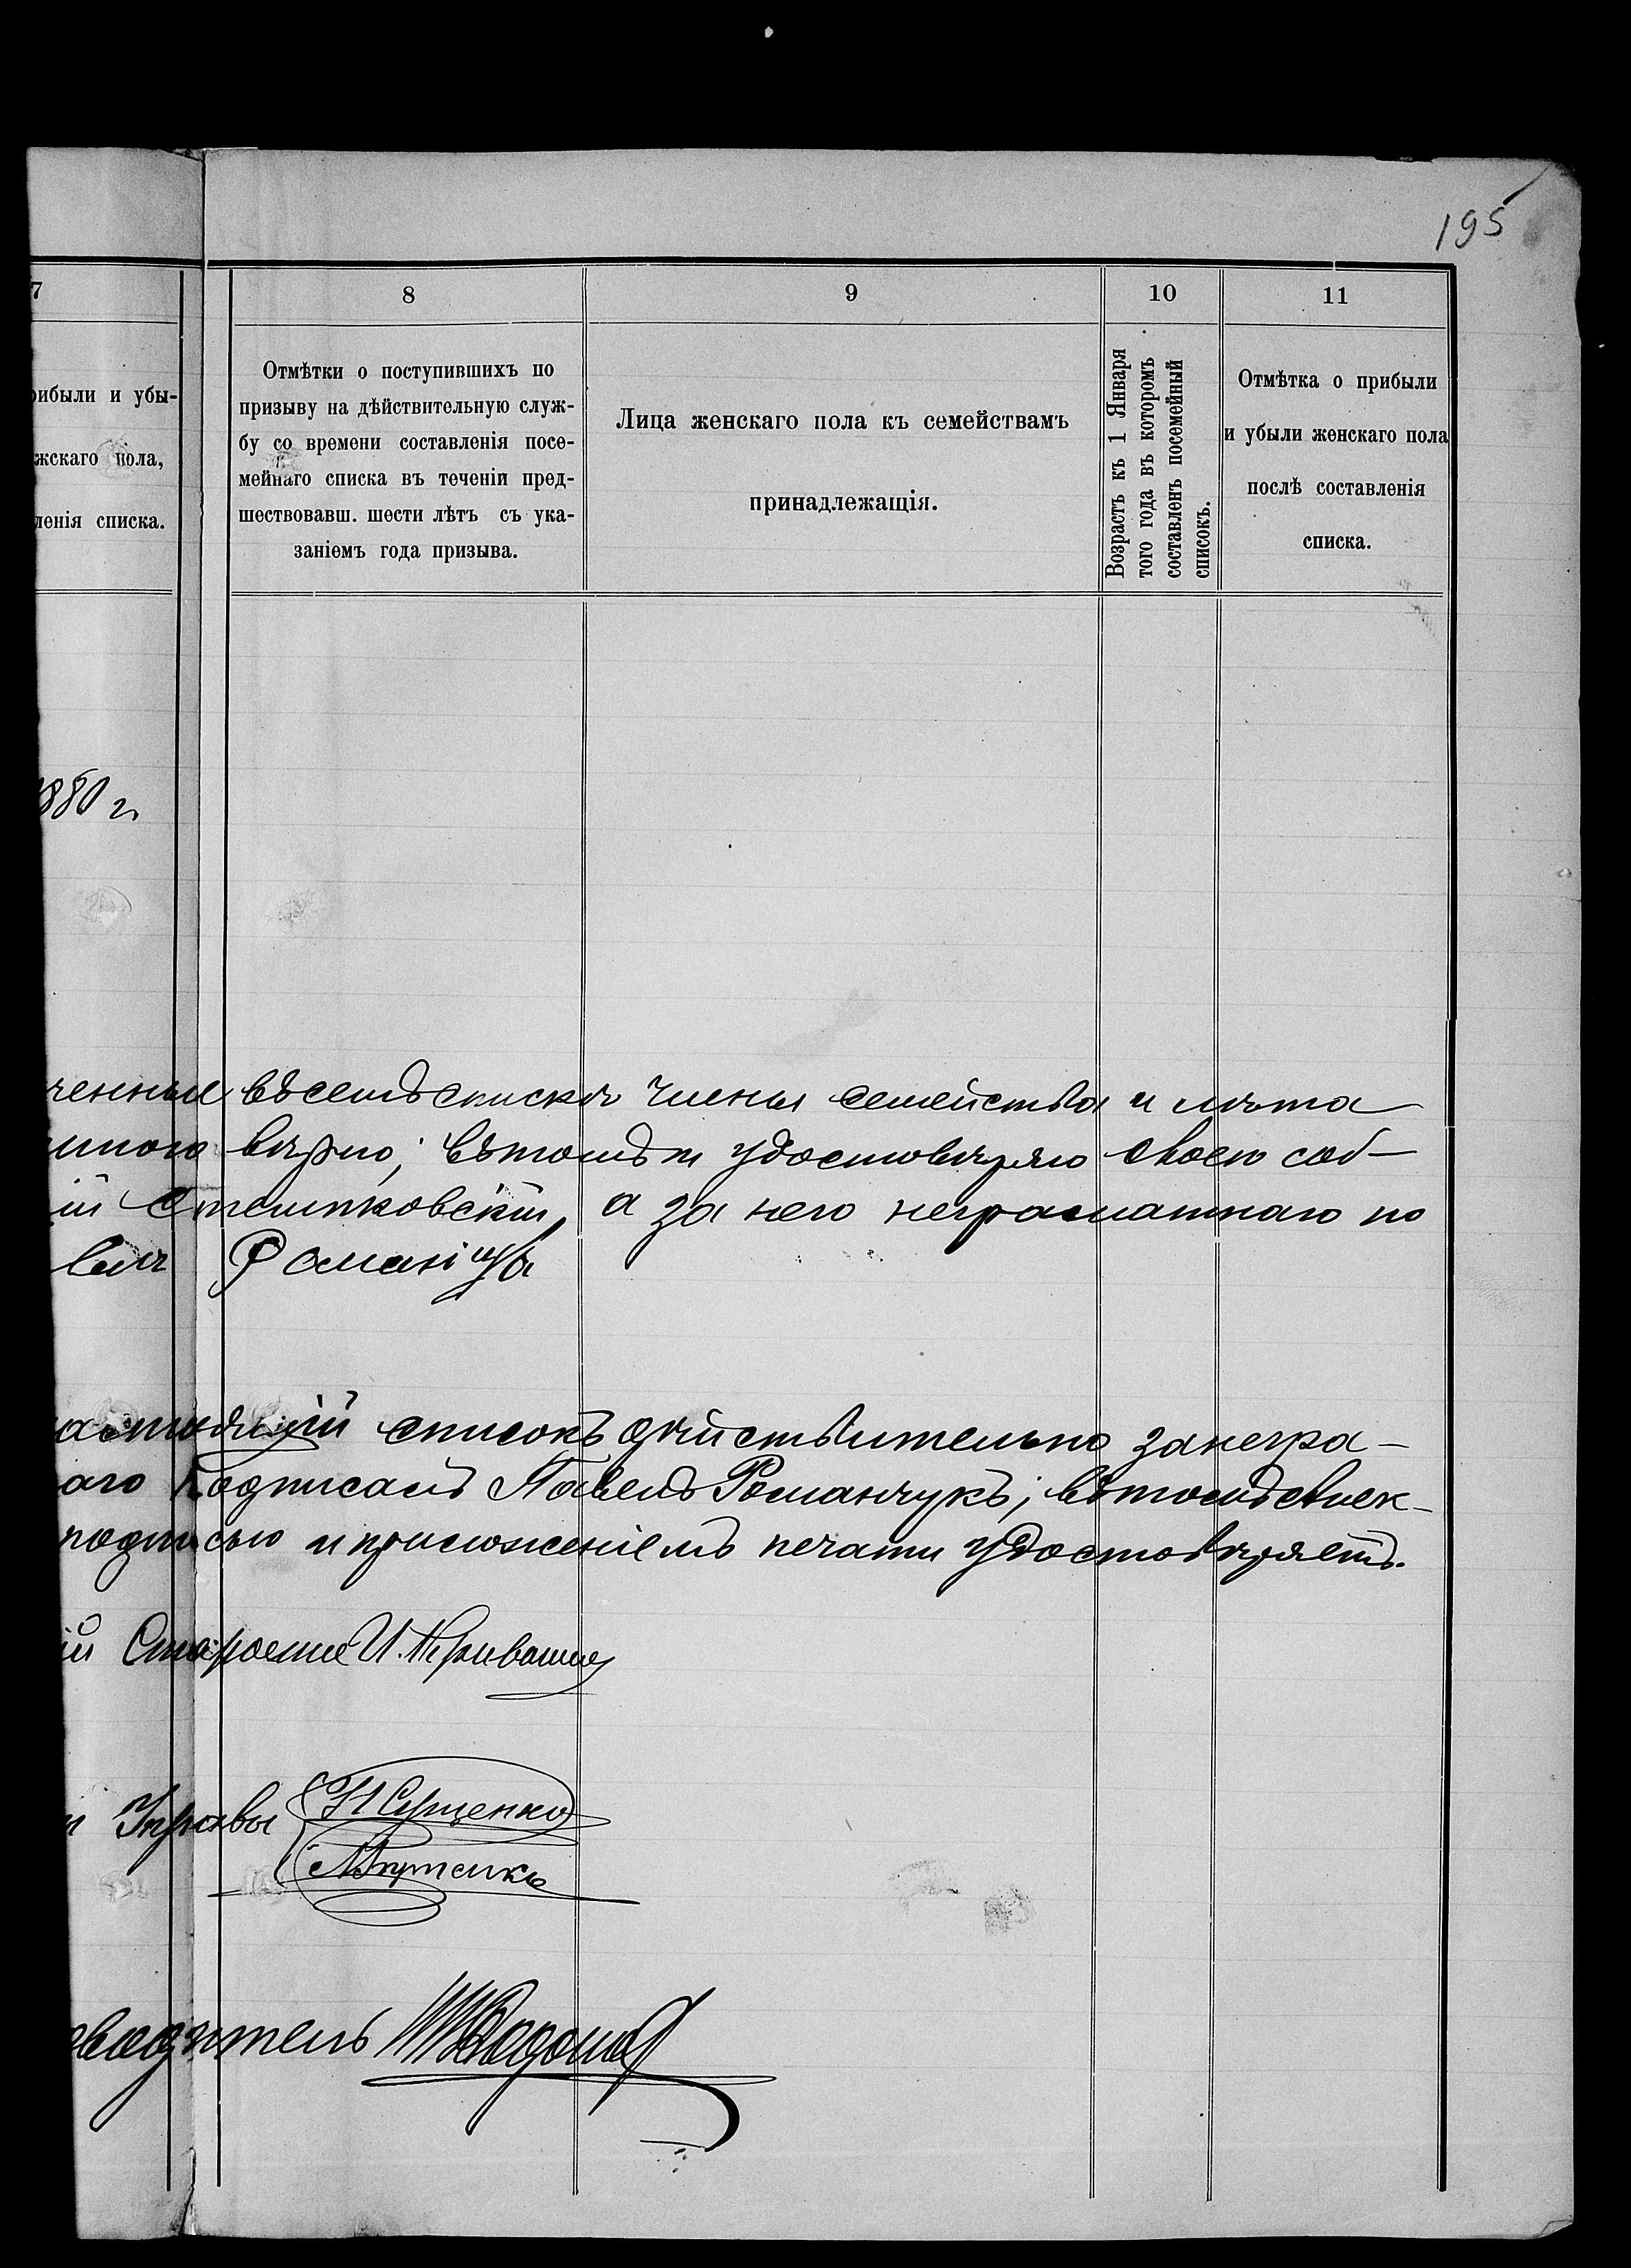 195
7
8
9
10
11
рибыли и убы-
жскаго пола,
ленія списка.
Отмѣтки о поступившихъ по
призыву на дѣйствительную служ-
бу со времени составленія посе-
мейнаго списка въ теченіи пред-
шествовавш. шести лѣтъ съ ука-
заніемъ года призыва.
Лица женскаго пола къ семействамъ
принадлежащія.
Возрастъ къ 1 Января
того года въ которомъ
составленъ посемейный
списокъ.
Отмѣтка о прибыли
и убыли женскаго пола
послѣ составленія
списка.
1880 г.
ченные въ семъ спискѣ члены семейства и лѣта
вѣрно; въ томъ и удостовѣряю своею соб-
ій а за него неграматнаго по
настоящій списокъ дѣйствительно за негра-
аго подписалъ Павелъ Романчукъ; въ томъ
подписью и приложеніемъ печати удостовѣряетъ.
ій Староста И.
Управы
оводитель